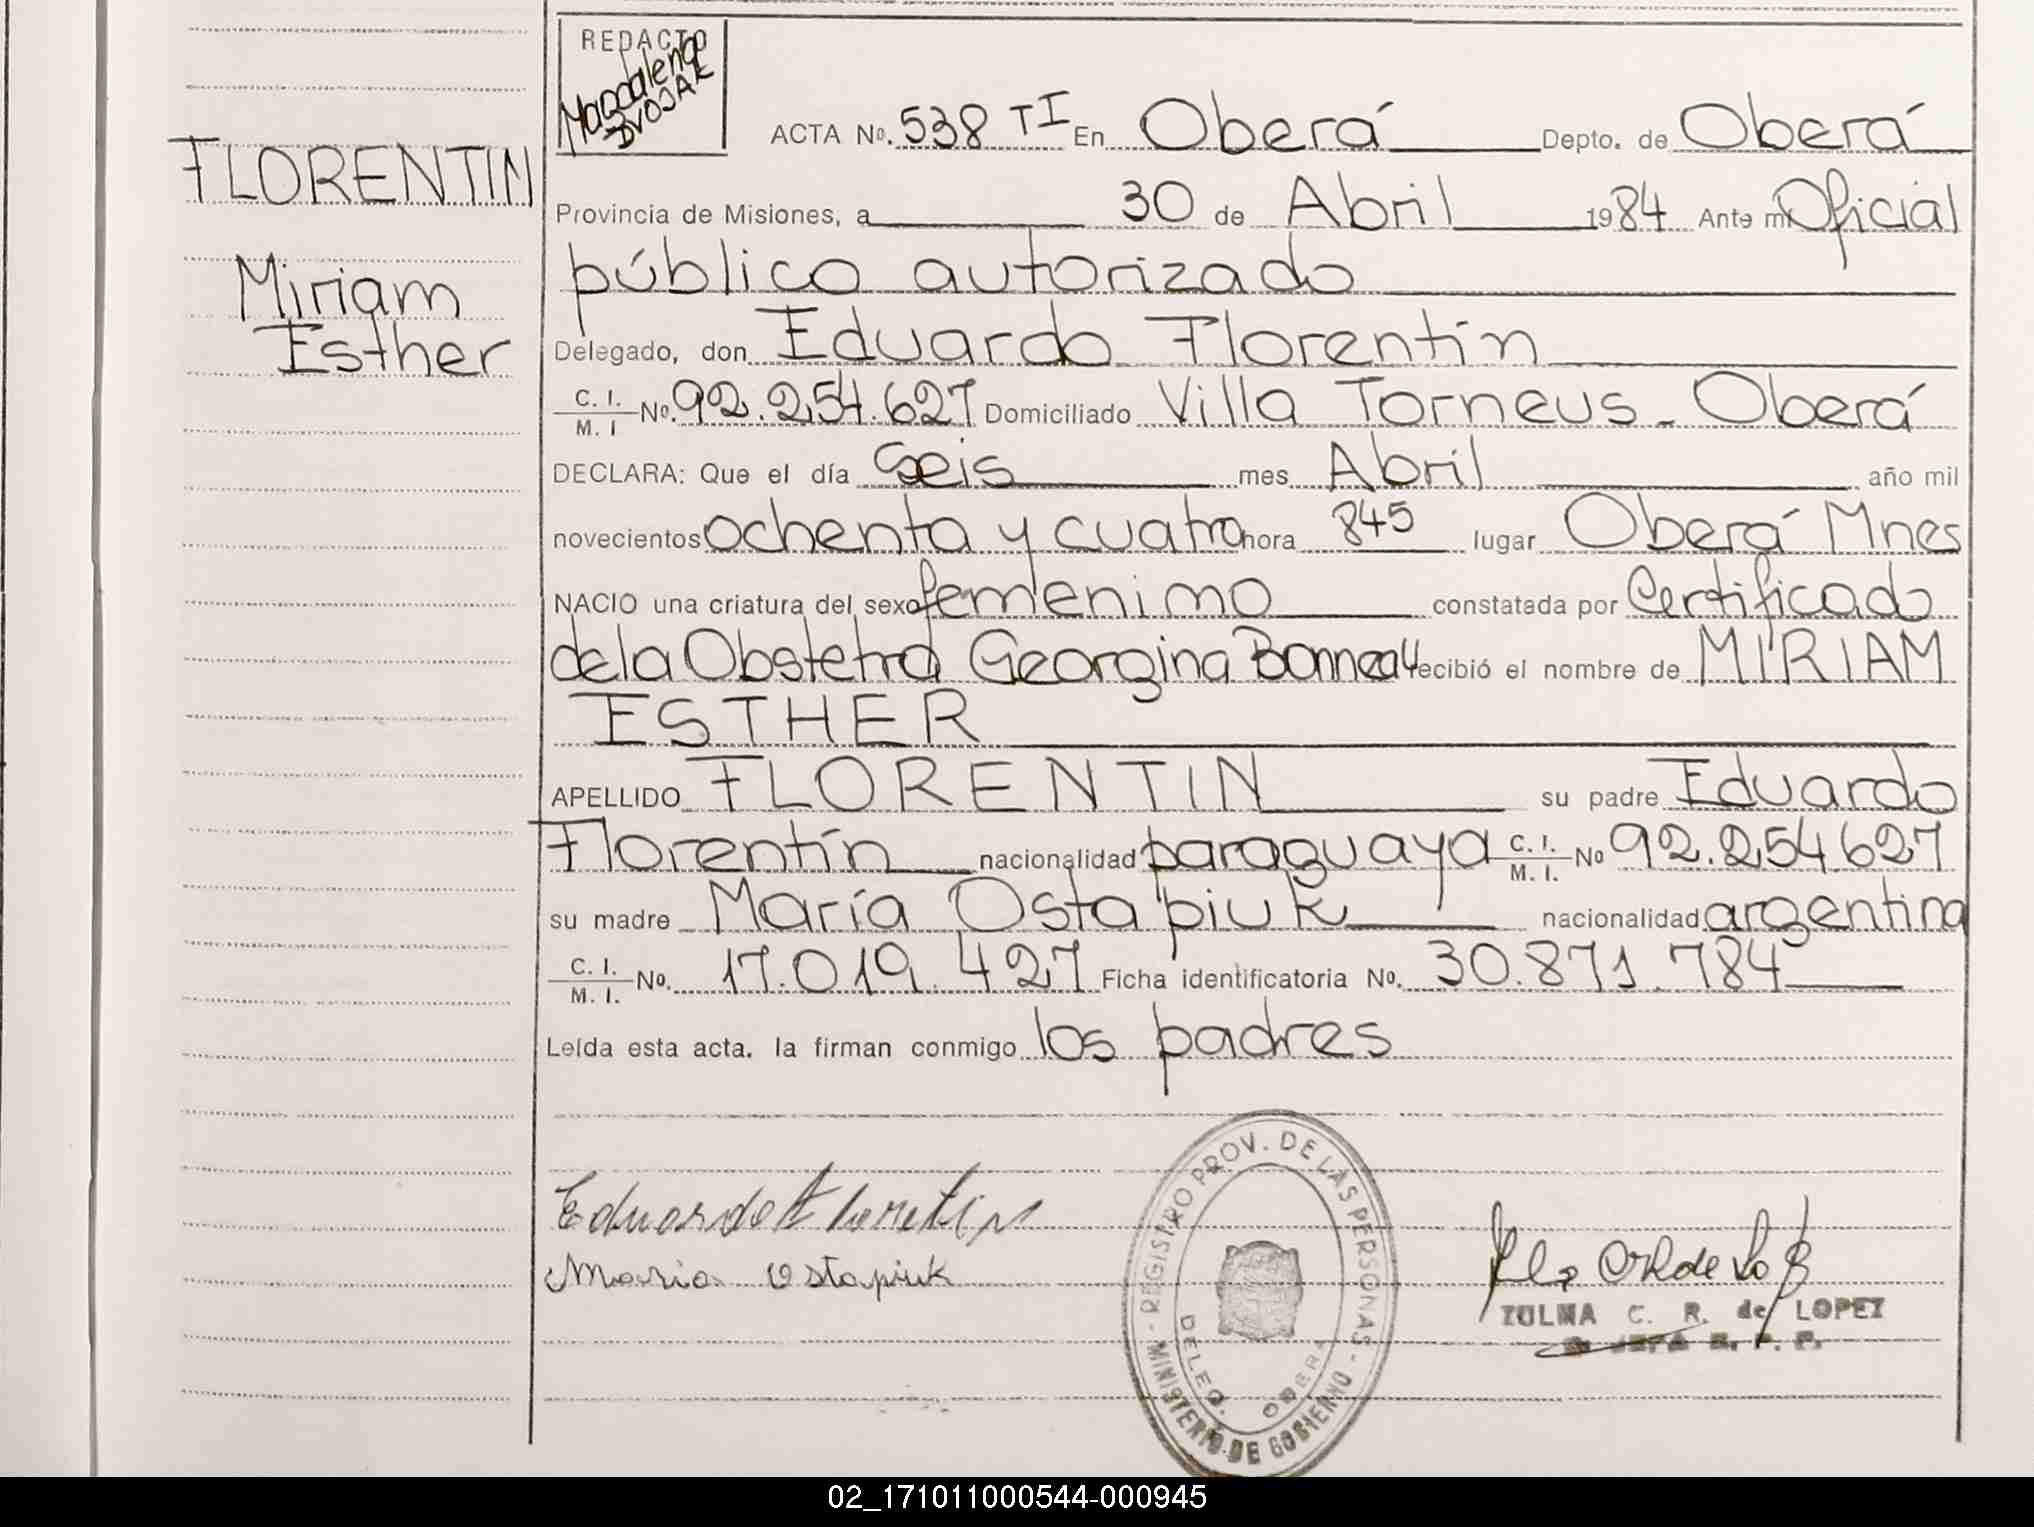 REDACTO
Magdalena
DVOJAK
ACTA Nº. 538 TI En Oberá Depto. de Oberá
FLORENTIN
Provincia de Misiones, a 30 de Abril 1984 Ante mí Oficial
Miriam
público autorizado
Esther
Delegado, don Eduardo Florentín
C. I. / M. I Nº. 92.254.627 Domiciliado Villa Torneus - Oberá
DECLARA: Que el día Seis mes Abril año mil
novecientos ochenta y cuatro hora 845 lugar Oberá Mnes
NACIO una criatura del sexo femenino constatada por Certificado
de la Obstetra Georgina recibió el nombre de MIRIAM
ESTHER
APELLIDO FLORENTIN su padre Eduardo
Florentín nacionalidad paraguaya C. I. / M. I. Nº 92.254.627
su madre María Ostapiuk nacionalidad argentina
C. I. / M. I. Nº. 17.019.427 Ficha identificatoria No. 30.871.784
Leída esta acta. la firman conmigo los padres
Eduardo Florentin
Maria Ostapiuk
MINISTERIO DE GOBIERNO - REGISTRO PROV. DE LAS PERSONAS -
DELEG. OBERA
ZULMA C. R. de LOPEZ
02_171011000544-000945